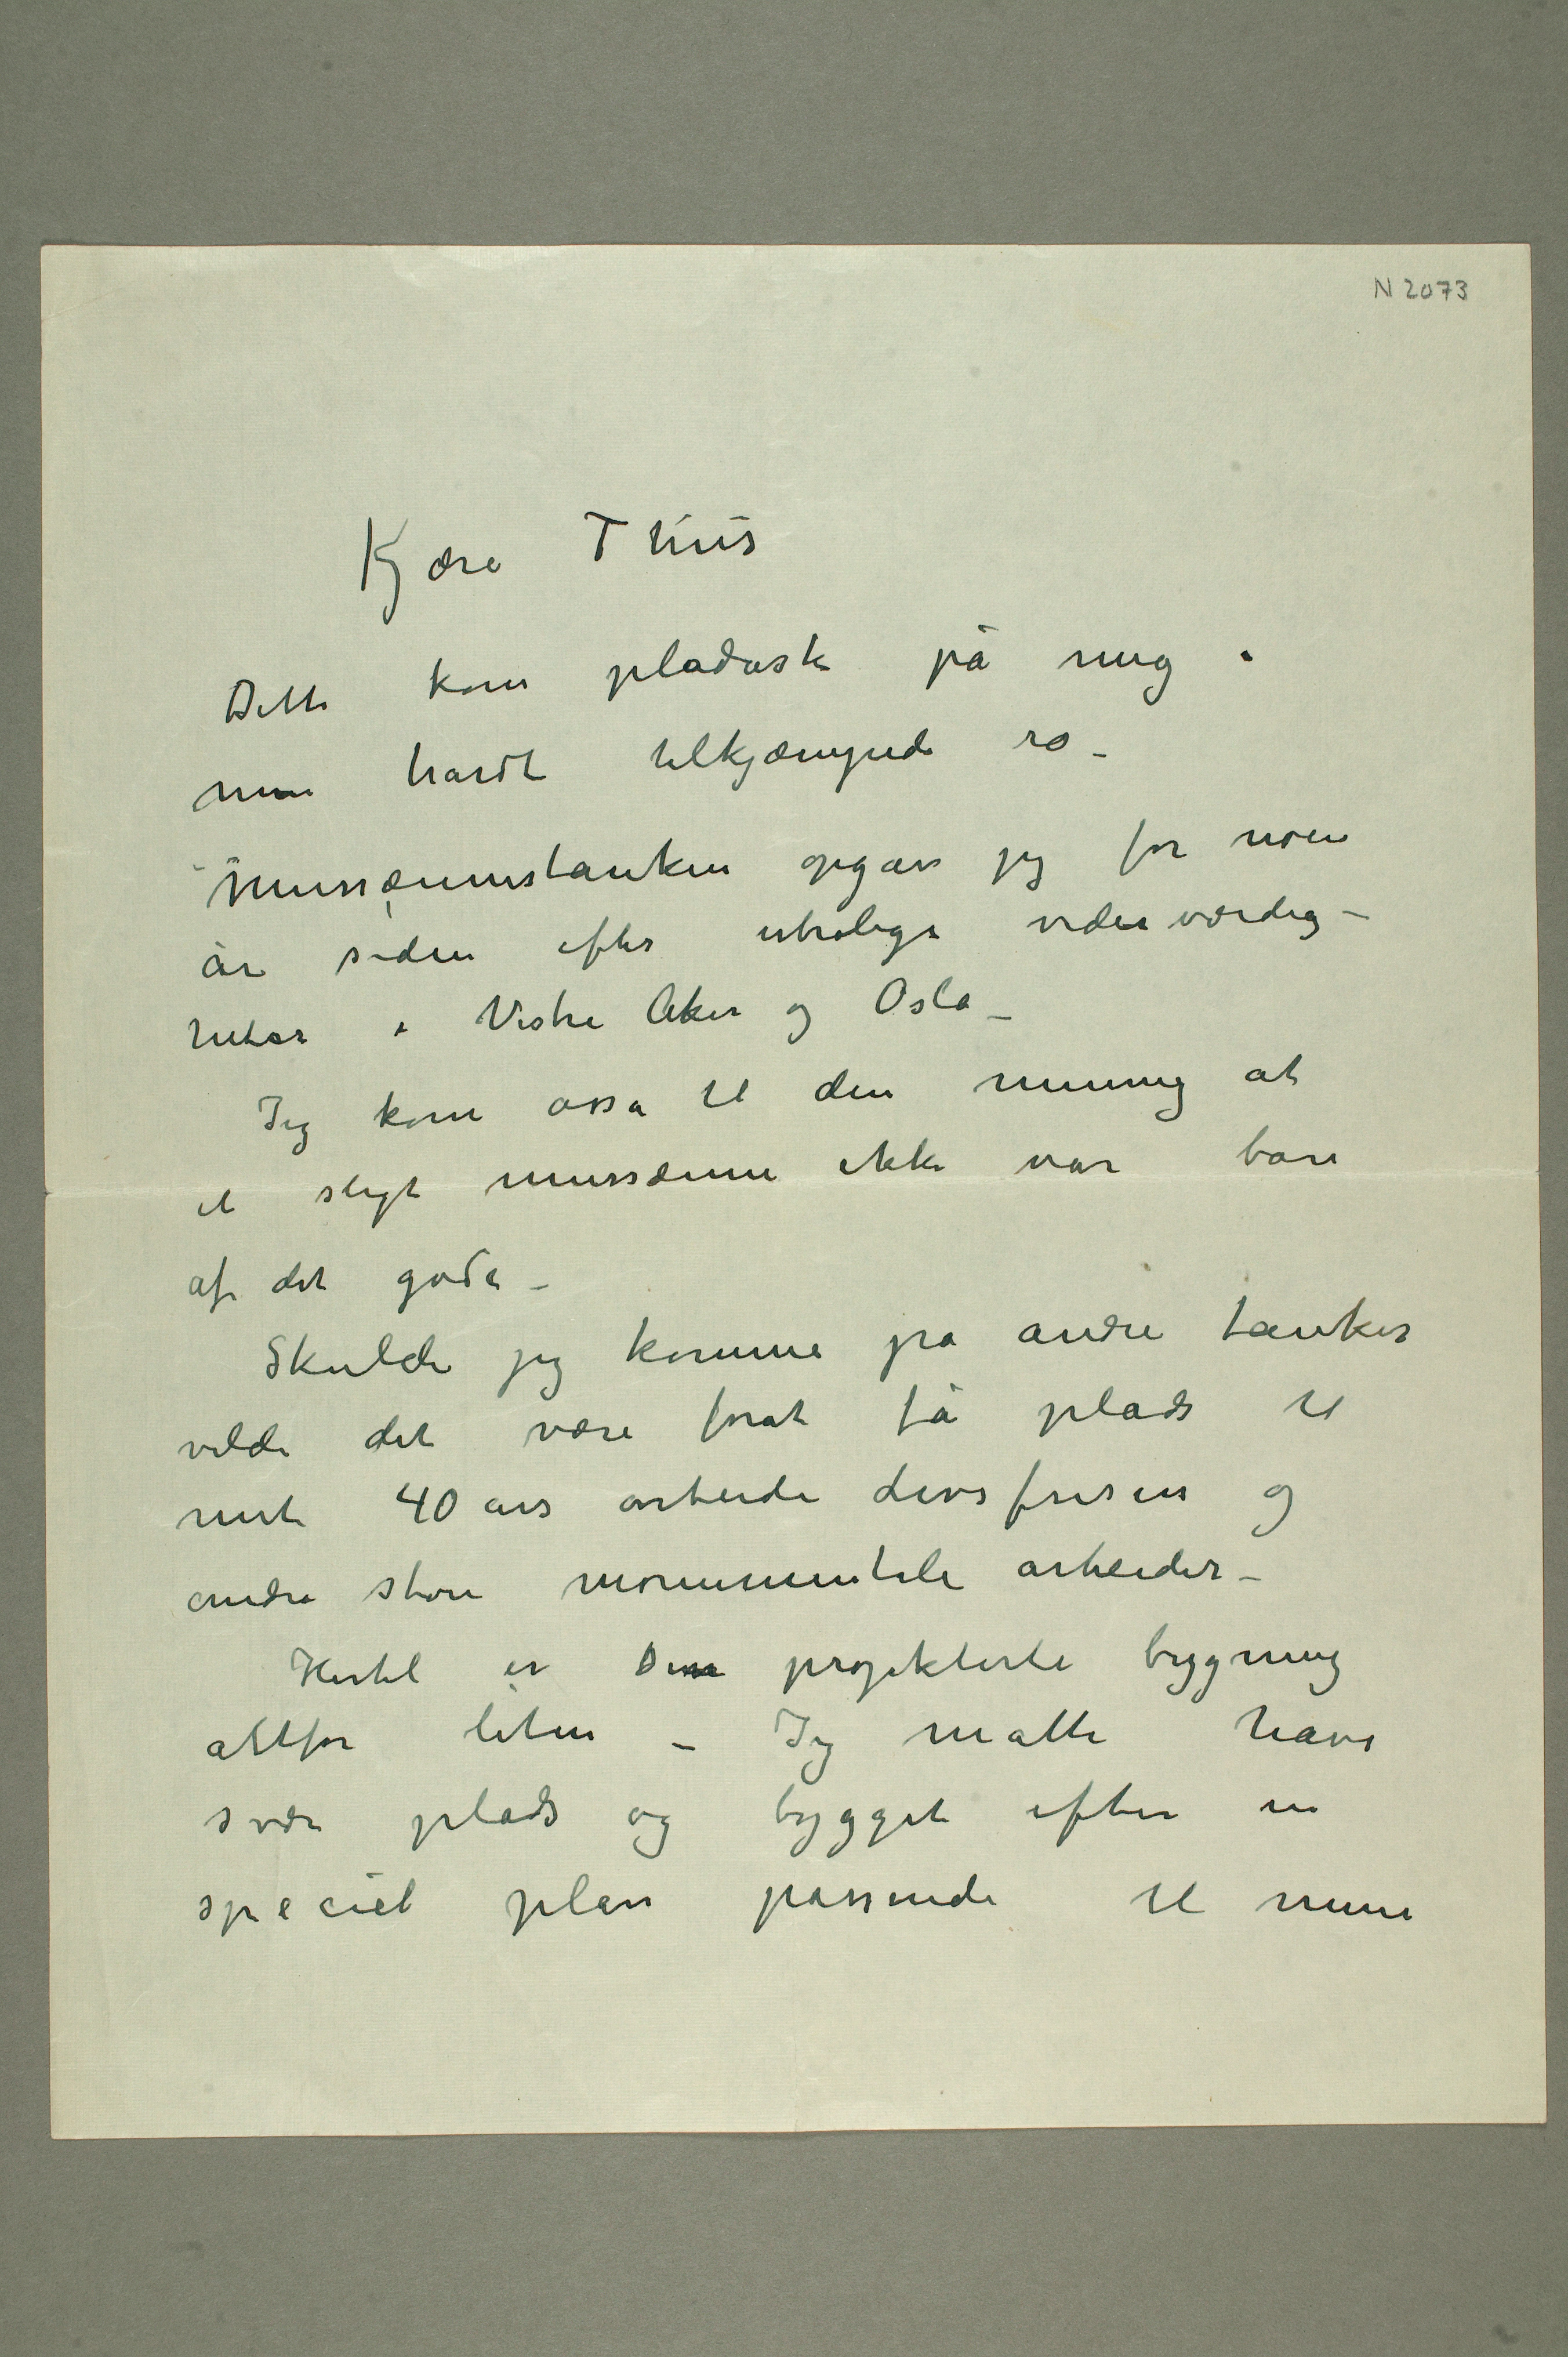 N 2073
Kjære Thiis
Dette kom pladask på mig i
min hardt tilkjæmpede ro –
Mussæumstanken opgav jeg for noen
år siden efter utrolige widerwærdig–
heter i Vestre Aker og Oslo –
Jeg kom osså til den mening at
et sligt mussæum ikke var bare
af det gode –
Skulde jeg komme på andre tanker
vilde det være forat få plads til
mit 40 års arbeide livsfrisen og
andre store monumentale arbeider –
Hertil er den projekterte bygning
altfor liten – Jeg måtte have
svær plads og bygget efter en
speciel plan passende til mine